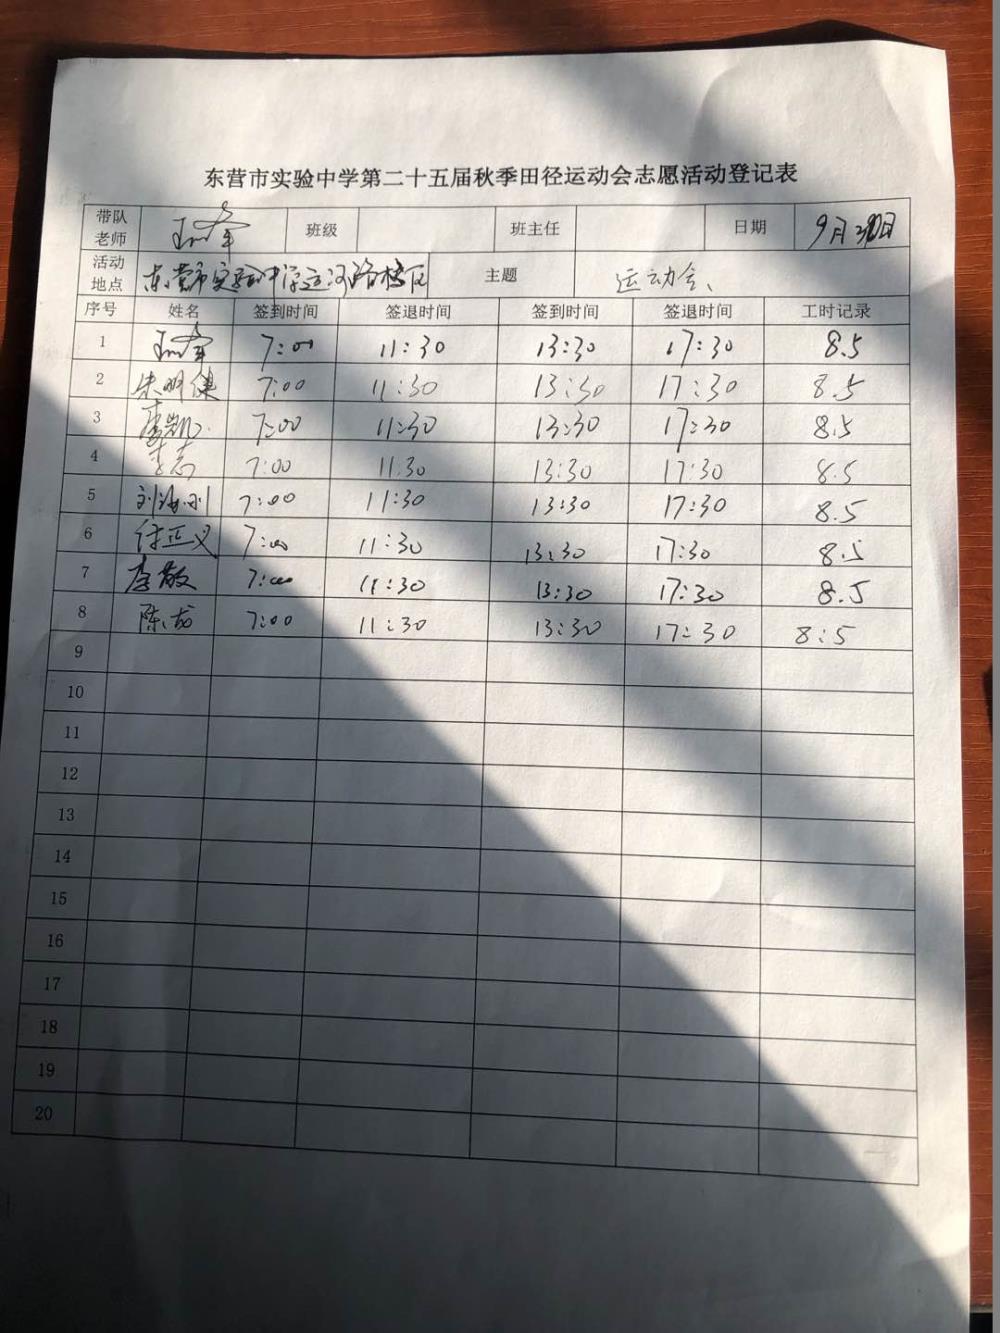 东营市实验中学第二十五届秋季田径运动会志愿活动登记表
带队老师 班级 班主任 日期 9月30日
活动地点 东营市实验中学运河路校区 主题 运动会、
序号 姓名 签到时间 签退时间 签到时间 签退时间 工时记录
1 7:00 11:30 13:30 17:30 8.5
2 朱明健 7:00 11:30 13:30 17:30 8.5
3 7:00 11:30 13:30 17:30 8.5
4 李志 7:00 11:30 13:30 17:30 8.5
5 刘海刚 7:00 11:30 13:30 17:30 8.5
6 徐正义 7:00 11:30 13:30 17:30 8.5
7 李敬 7:00 11:30 13:30 17:30 8.5
8 陈龙 7:00 11:30 13:30 17:30 8:5
9
10
11
12
13
14
15
16
17
18
19
20